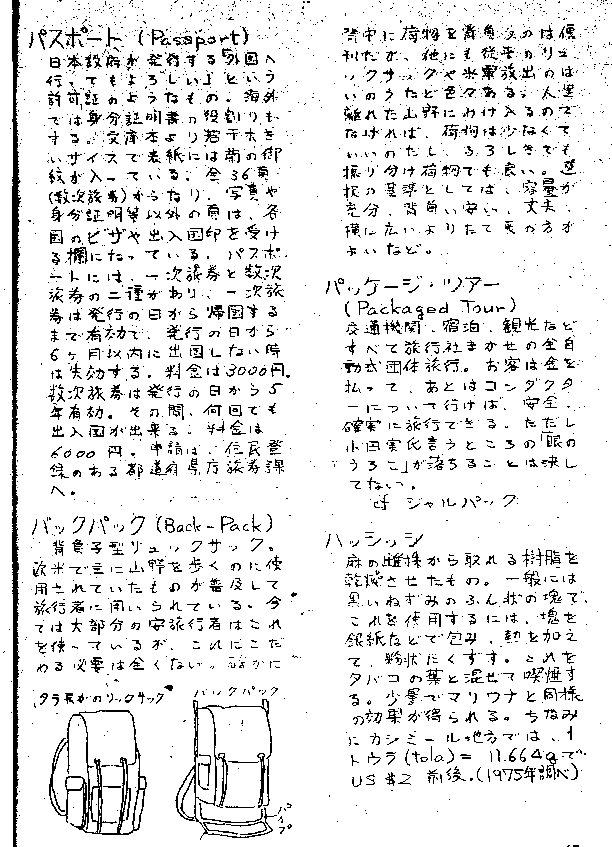 パスポート (Passport)
日本政府が発行する「外国へ
行ってもよろしい」という
許可証のようなもの。海外
では身分証明書の役割りも
する。文庫本より若干大き
いサイズで表紙には菊の御
紋が入っている。全36頁
(数次旅券)からなり、写真や
身分証明等以外の頁は、各
国のビザや出入国印を受け
る欄になっている。パスポ
ートには、一次旅券と数次
旅券の二種があり、一次旅
券は発行の日から帰国する
まで有効で、発行の日から
6ヶ月以内に出国しない時
は失効する。料金は3000円。
数次旅券は発行の日から5
年有効。その間、何回でも
出入国が出来る。料金は
6000円。申請は、住民登
録のある都道府県庁旅券課
へ。
バックパック (Back-Pack)
背負子型リュックサック。
欧米で主に山野を歩くのに使
用されていたものが普及して
旅行者に用いられている。今
では大部分の安旅行者はこれ
を使っているが、これにこだ
わる必要は全くない。確かに
タラ長がのリックサック
バックパック
パイプ
背中に荷物を背負うのは便
利だが、他にも従来のリュ
ックサックや米軍放出のは
いのうなど色々ある。人里
離れた山野にわけ入るので
なければ、荷物は少なくて
いいのだし、ふろしきでも
振り分け荷物でも良い。選
択の基準としては、容量が
充分、背負い安い、丈夫、
横に広いよりたて長の方が
よいなど。
パッケージ・ツアー
(Packaged Tour)
交通機関、宿泊、観光など
すべて旅行社まかせの全自
動式団体旅行。お客は金を
払って、あとはコンダクタ
ーについて行けば、安全、
確実に旅行できる。ただし
小田実氏言うところの「眼の
うろこ」が落ちることは決し
てない。
cf ジャルパック
ハッシッシ
麻の雌株から取れる樹脂を
乾燥させたもの。一般には
黒いねずみのふん状の塊で、
これを使用するには、塊を
銀紙などで包み、熱を加え
て、粉状にくずす。これを
タバコの葉と混ぜて喫煙す
る。少量でマリワナと同様
の効果が得られる。ちなみ
にカシミール地方では、1
トウラ(tola)= 11.664gで
US $2 前後。(1975年調べ)